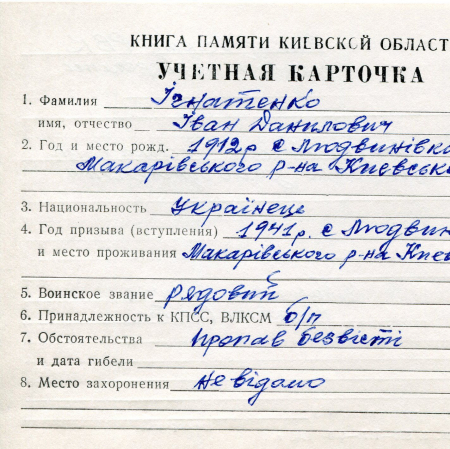 КНИГА ПАМЯТИ КИЕВСКОЙ ОБЛАСТ
УЧЕТНАЯ КАРТОЧКА
1. Фамилия Ігнатенко
имя, отчество Іван Данилович
2. Год и место рожд. 1912р с Людвинівка
Макарівського р-на Києвсько
3. Национальность Українець
4. Год призыва (вступления) 1941р. с Людвин
и место проживания Макарівського р-на Києв
5. Воинское звание рядовий
6. Принадлежность к КПСС, ВЛКСМ б/п
7. Обстоятельства пропав безвісті
и дата гибели
8. Место захоронения невідомо